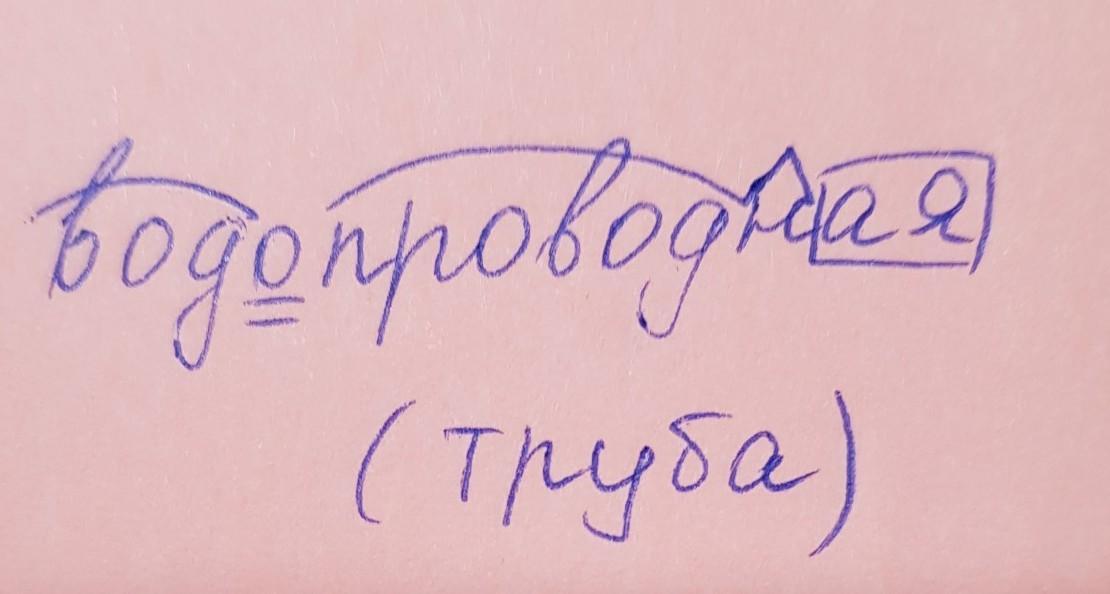 водопроводная
(труба)